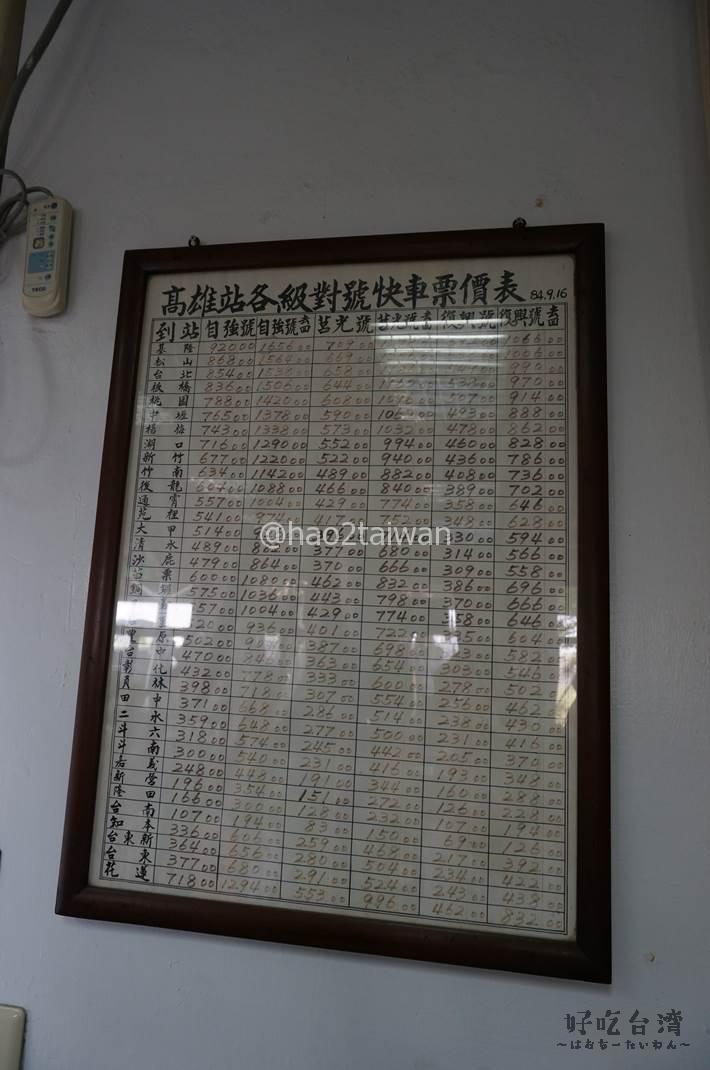 高雄站各級對號快車票價表 84.9.16
到站 自強號 自強號來回 莒光號 莒光號來回 復興號 復興號來回
基隆 920.00 1656.00 709.00 1066.00
松山 868.00 1564.00 669.00 1006.00
台北 854.00 1538.00 658.00 990.00
板橋 836.00 1506.00 644.00 538.00 970.00
桃園 788.00 1420.00 608.00 1096.00 507.00 914.00
中壢 765.00 1378.00 590.00 1062.00 493.00 888.00
楊梅 743.00 1338.00 573.00 1032.00 478.00 862.00
湖口 716.00 1290.00 552.00 994.00 460.00 828.00
新竹 677.00 1220.00 522.00 940.00 436.00 786.00
竹南 634.00 1142.00 489.00 882.00 408.00 736.00
後龍 604.00 1088.00 466.00 840.00 389.00 702.00
通霄 557.00 1004.00 429.00 774.00 358.00 646.00
苑裡 541.00 974.00 417.00 752.00 348.00 628.00
大甲 514.00 330.00 594.00
清水 489.00 882.00 377.00 680.00 314.00 566.00
沙鹿 479.00 864.00 370.00 666.00 309.00 558.00
苗栗 600.00 1080.00 462.00 832.00 386.00 696.00
銅鑼 575.00 1036.00 443.00 798.00 370.00 666.00
557.00 1004.00 429.00 774.00 358.00 646.00
520.00 936.00 401.00 722.00 335.00 604.00
豐原 502.00 387.00 698.00 582.00
台中 470.00 848.00 363.00 654.00 303.00 546.00
彰化 432.00 778.00 333.00 600.00 278.00 502.00
員林 398.00 718.00 307.00 554.00 256.00 462.00
田中 371.00 668.00 286.00 514.00 238.00 430.00
二水 359.00 648.00 277.00 500.00 231.00 416.00
斗六 318.00 574.00 245.00 442.00 205.00 370.00
斗南 300.00 540.00 231.00 416.00 193.00 348.00
嘉義 248.00 448.00 191.00 344.00 160.00 288.00
新營 196.00 354.00 151.00 272.00 126.00 228.00
隆田 166.00 300.00 128.00 232.00 107.00 194.00
台南 107.00 194.00 83.00 150.00 69.00 126.00
知本 336.00 606.00 259.00 468.00 217.00 392.00
台東新 364.00 656.00 280.00 504.00 234.00 422.00
台東 377.00 680.00 291.00 524.00 243.00 438.00
花蓮 718.00 1294.00 553.00 996.00 462.00 832.00
@hao2taiwan
TECO
好吃台湾
~はおちーたいわん~